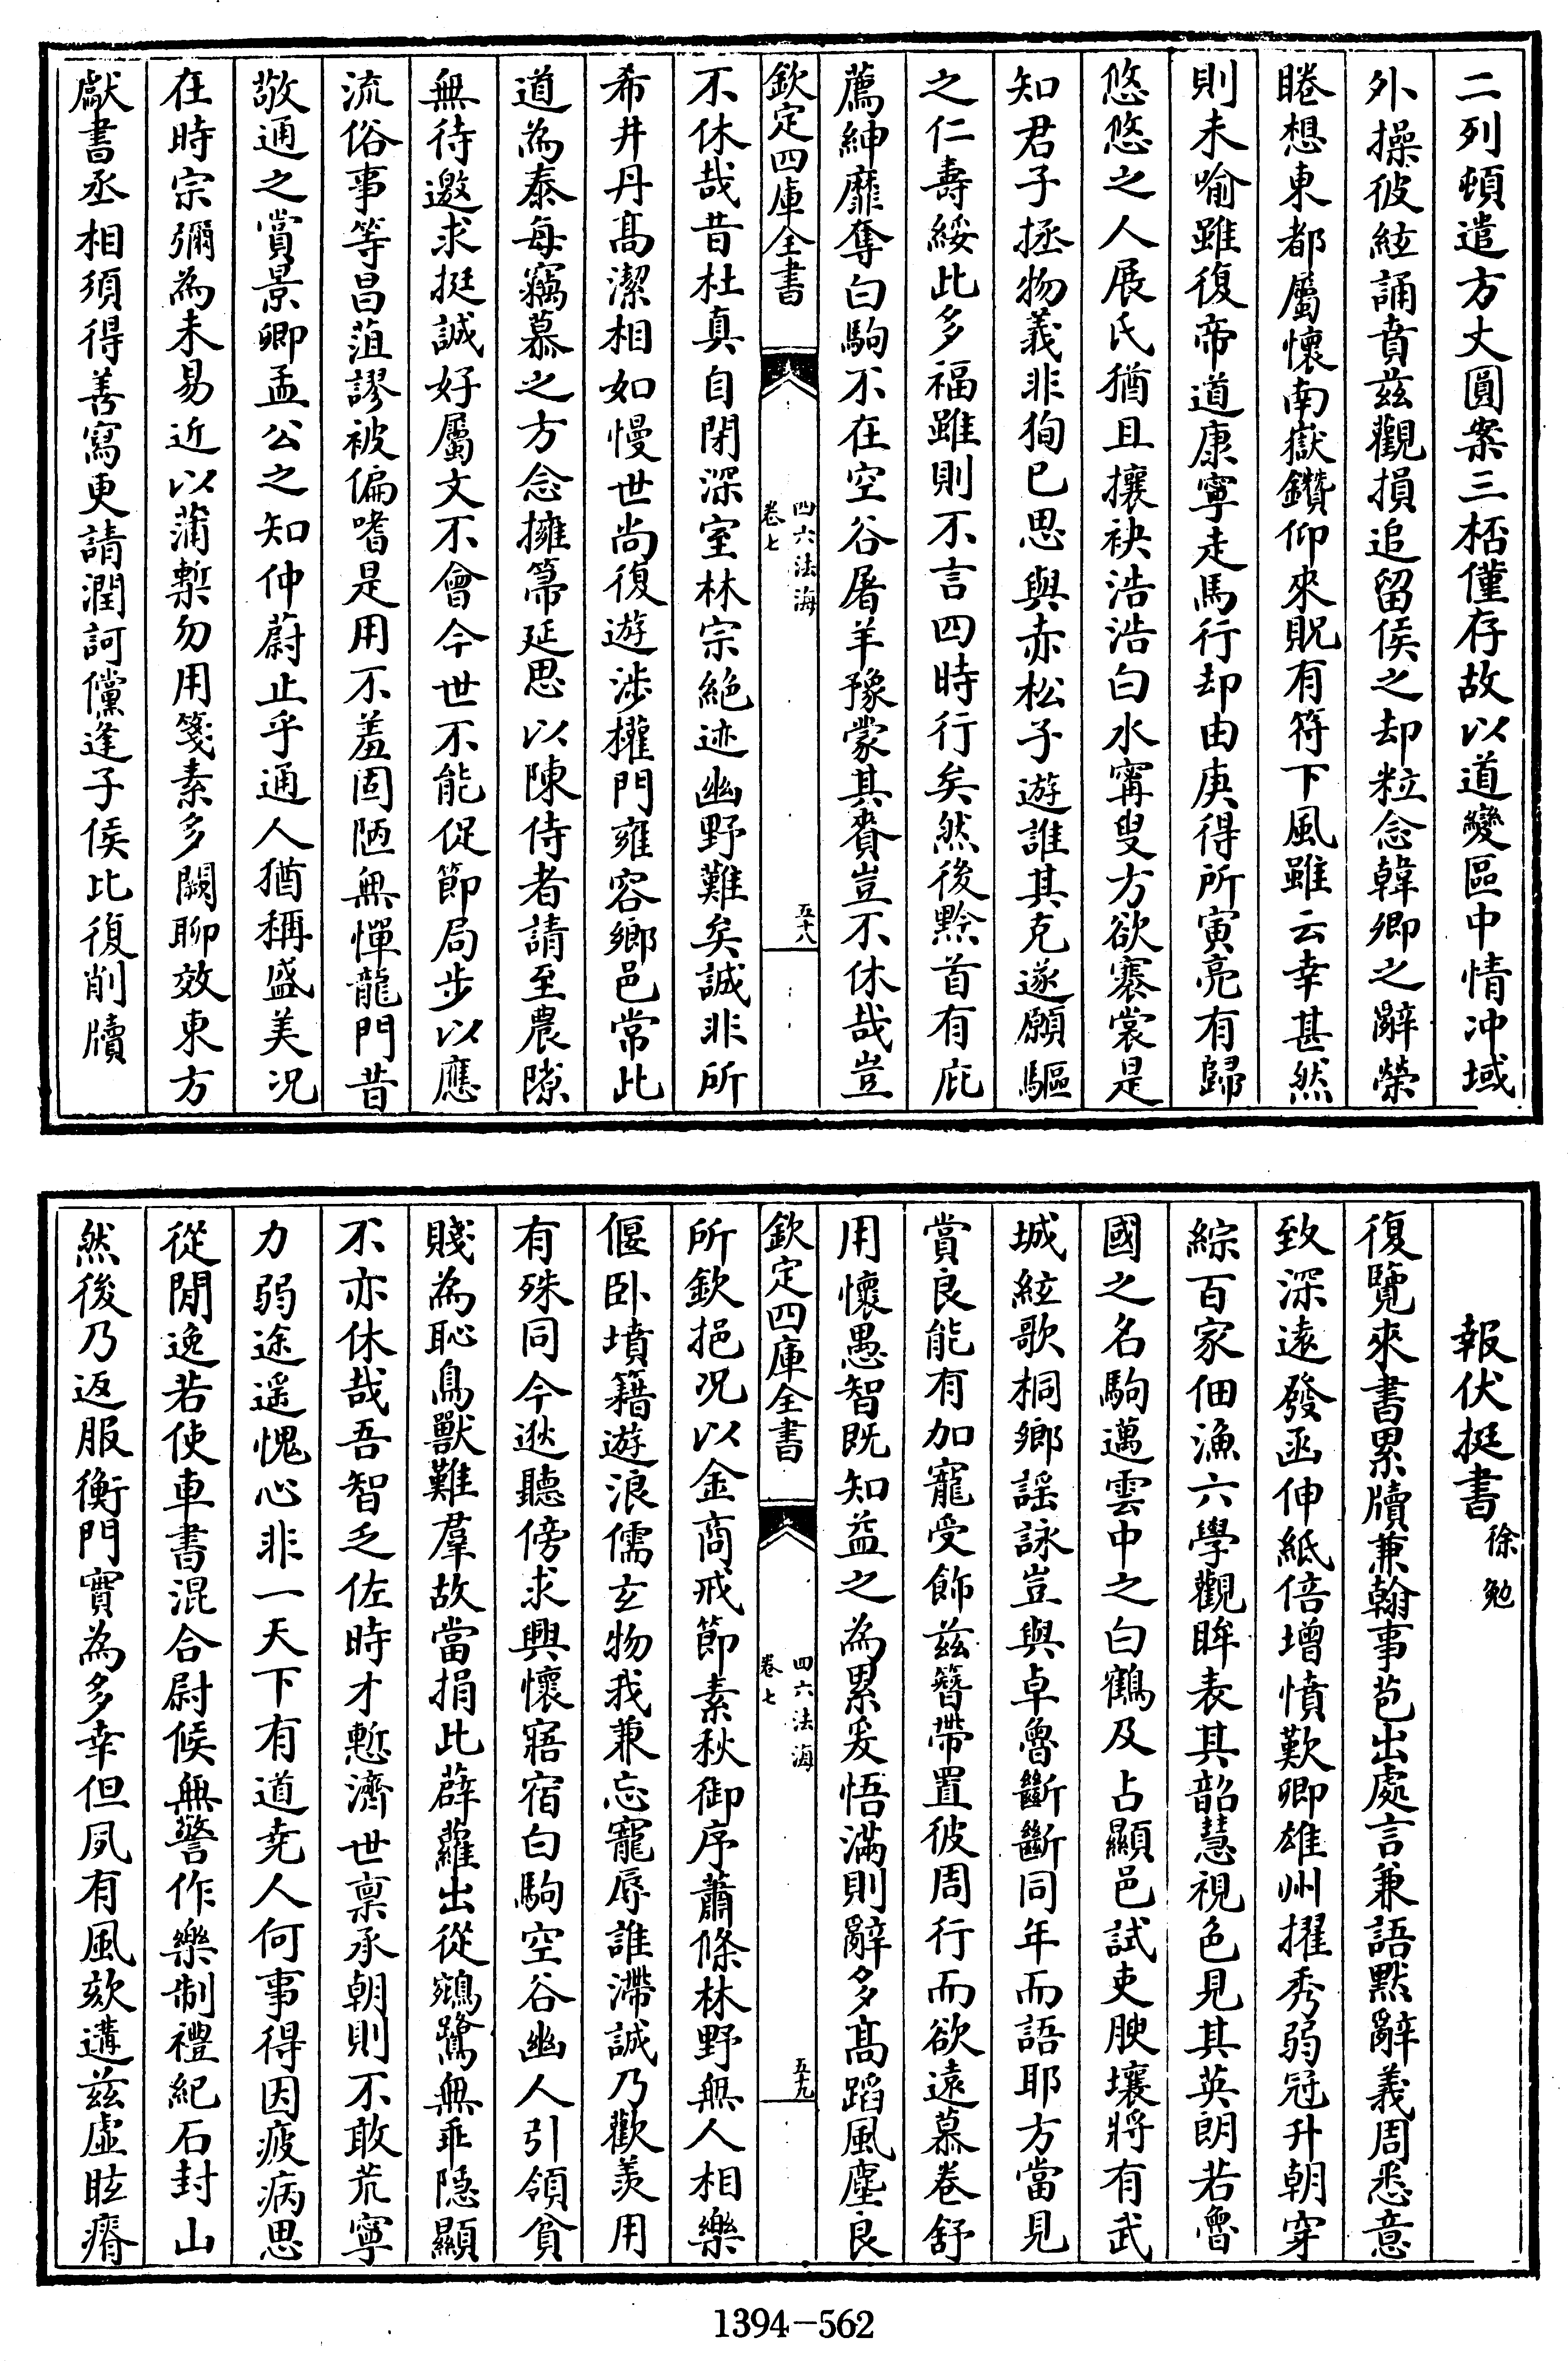 二列頓遣方丈圓案三桮僅存故以道變區中情冲域
外操彼絃誦賁兹觀損追留侯之却粒念韓卿之辭榮
睠想東都屬懷南嶽鑽仰來貺有符下風雖云幸甚然
則未喻雖復帝道康寧走馬行却由庚得所寅亮有歸
悠悠之人展氏猶且攘袂浩浩白水寗叟方欲褰裳是
知君子拯物義非徇已思與赤松子遊誰其克遂願驅
之仁壽綏此多福雖則不言四時行矣然後黔首有庇
薦紳靡奪白駒不在空谷屠羊豫蒙其賚豈不休哉豈
欽定四庫全書
四六法海
卷七
五十八
不休哉昔杜真自閉深室林宗絶迹幽野難矣誠非所
希井丹髙潔相如慢世尚復遊涉權門雍容鄉邑常此
道為泰每竊慕之方念擁箒延思以陳侍者請至農隙
無待邀求挺誠好屬文不會今世不能促節局步以應
流俗事等昌菹謬被偏嗜是用不羞固陋無憚龍門昔
敬通之賞景卿孟公之知仲蔚止乎通人猶稱盛美况
在時宗彌為未易近以蒲槧勿用箋素多闕聊效東方
獻書丞相須得善寫更請潤訶儻逢子侯比復削牘
報伏挺書 徐勉
復覽來書累牘兼翰事苞出處言兼語黙辭義周悉意
致深遠發函伸紙倍增憤歎卿雄州擢秀弱冠升朝穿
綜百家佃漁六學觀眸表其韶慧視色見其英朗若魯
國之名駒邁雲中之白鶴及占顯邑試吏腴壤將有武
城絃歌桐鄉謡詠豈與卓魯斷斷同年而語耶方當見
賞良能有加寵受飾兹簪帶置彼周行而欲遠慕卷舒
用懷愚智既知益之為累爰悟滿則辭多髙蹈風塵良
欽定四庫全書
四六法海
卷七
五十九
所欽挹况以金商戒節素秋御序蕭條林野無人相樂
偃卧墳籍遊浪儒玄物我兼忘寵辱誰滯誠乃歡羨用
有殊同今逖聽傍求興懷寤宿白駒空谷幽人引領貧
賤為恥鳥獸難羣故當捐此薜蘿出從鵷鷺無乖隠顯
不亦休哉吾智乏佐時才慙濟世禀承朝則不敢荒寧
力弱途遥愧心非一天下有道尭人何事得因疲病思
從閒逸若使車書混合尉候無警作樂制禮紀石封山
然後乃返服衡門實為多幸但夙有風欬遘兹虛眩瘠
1394-562